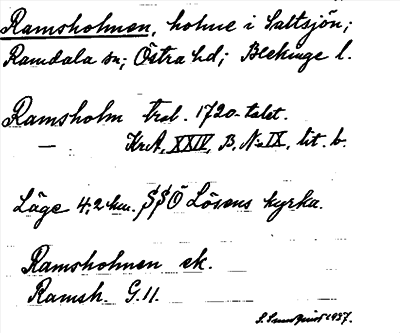 Ramsholmen, holme i Saltsjön;
Ramdala sn; Östra hd; Blekinge l.
Ramsholm trol. 1720-talet.
— KrA, XXIV, B. No IX, lit. b.
Läge 4,2 km. SSÖ Lösens kyrka.
Ramsholmen ek.
Ramsh. G.11.
S. Sundquist 1937.